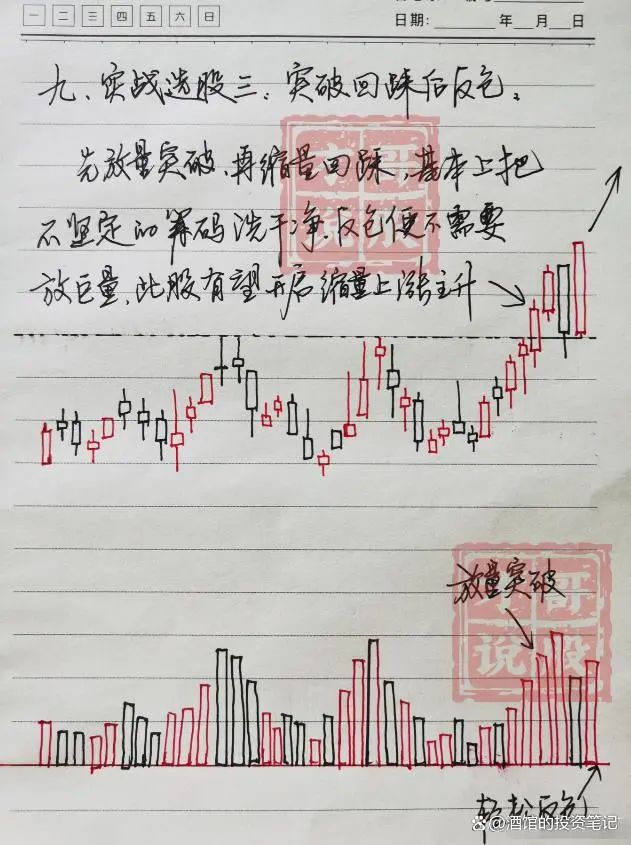 一 二 三 四 五 六 日
日期: 年 月 日
九、实战选股三：突破回踩后反包。
先放量突破，再缩量回踩，基本上把
不坚定的筹码洗干净，反包便不需要
放巨量，此股有望开启缩量上涨主升
哥
说股
放量突破
哥
说股
轻松反包
酒馆的投资笔记